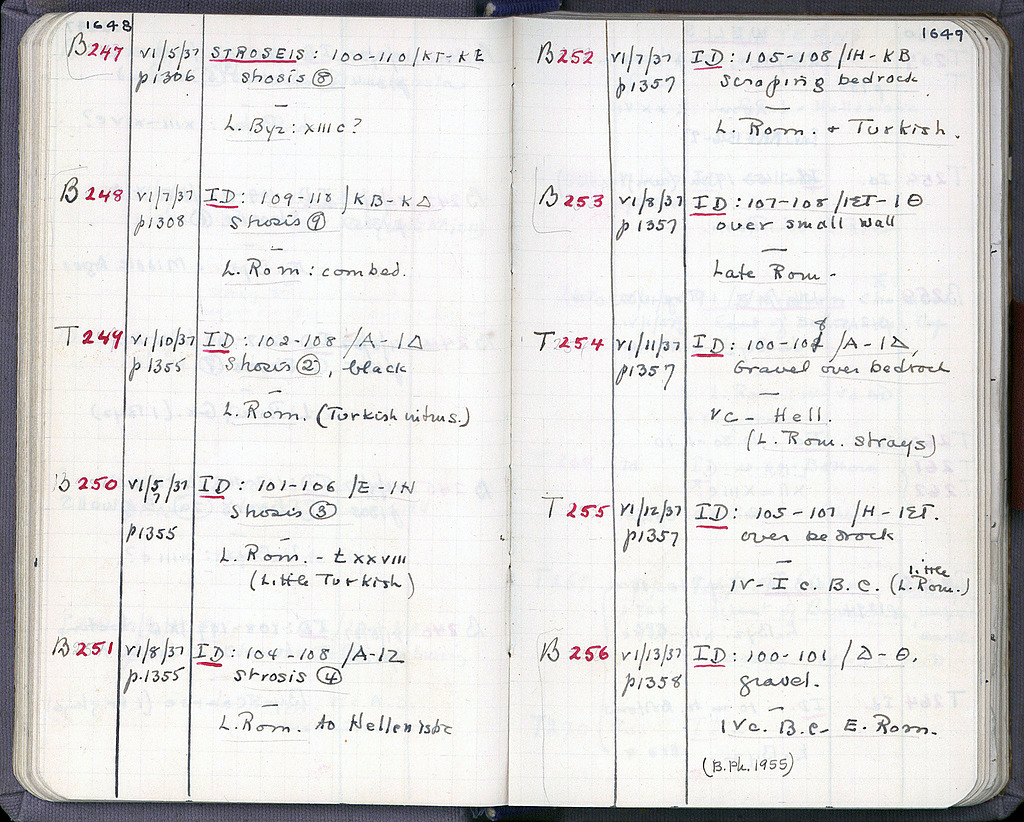 1648
B247 VI/5/37 STROSEIS: 100-110/KΣT-KE
p1306 strosis ⑧
—
L. Byz: XIII c?
B248 VI/7/37 ID: 109-118/KB-KΔ
p1308 strosis ⑨
—
L. Rom: combed.
T249 VI/10/37 ID: 102-108/A-IΔ
p1355 strosis ②, black
—
L. Rom. (Turkish intrus.)
B250 VI/5/37 ID: 101-106/E-IH
7 strosis ③
p1355
—
L. Rom. - t xxviii
(Little Turkish)
B251 VI/8/37 ID: 104-108/A-IZ
p.1355 strosis ④
—
L. Rom. to Hellenistic
1649
B252 VI/7/37 ID: 105-108/IH-KB
p1357 scraping bedrock
—
L. Rom. + Turkish.
B253 VI/8/37 ID: 107-108/IΣT-IΘ
p1357 over small wall
—
Late Rom.
T254 VI/11/37 ID: 100-108/A-IΔ,
p1357 Gravel over bedrock
—
Vc - Hell.
(L. Rom. strays)
T255 VI/12/37 ID: 105-107/H-IΣT.
p1357 over bedrock
—
IV-I c. B.C. (little L. Rom.)
B256 VI/13/37 ID: 100-101/Δ-Θ.
p1358 gravel.
—
IVc. B.C - E. Rom.
(B.Ph. 1955)